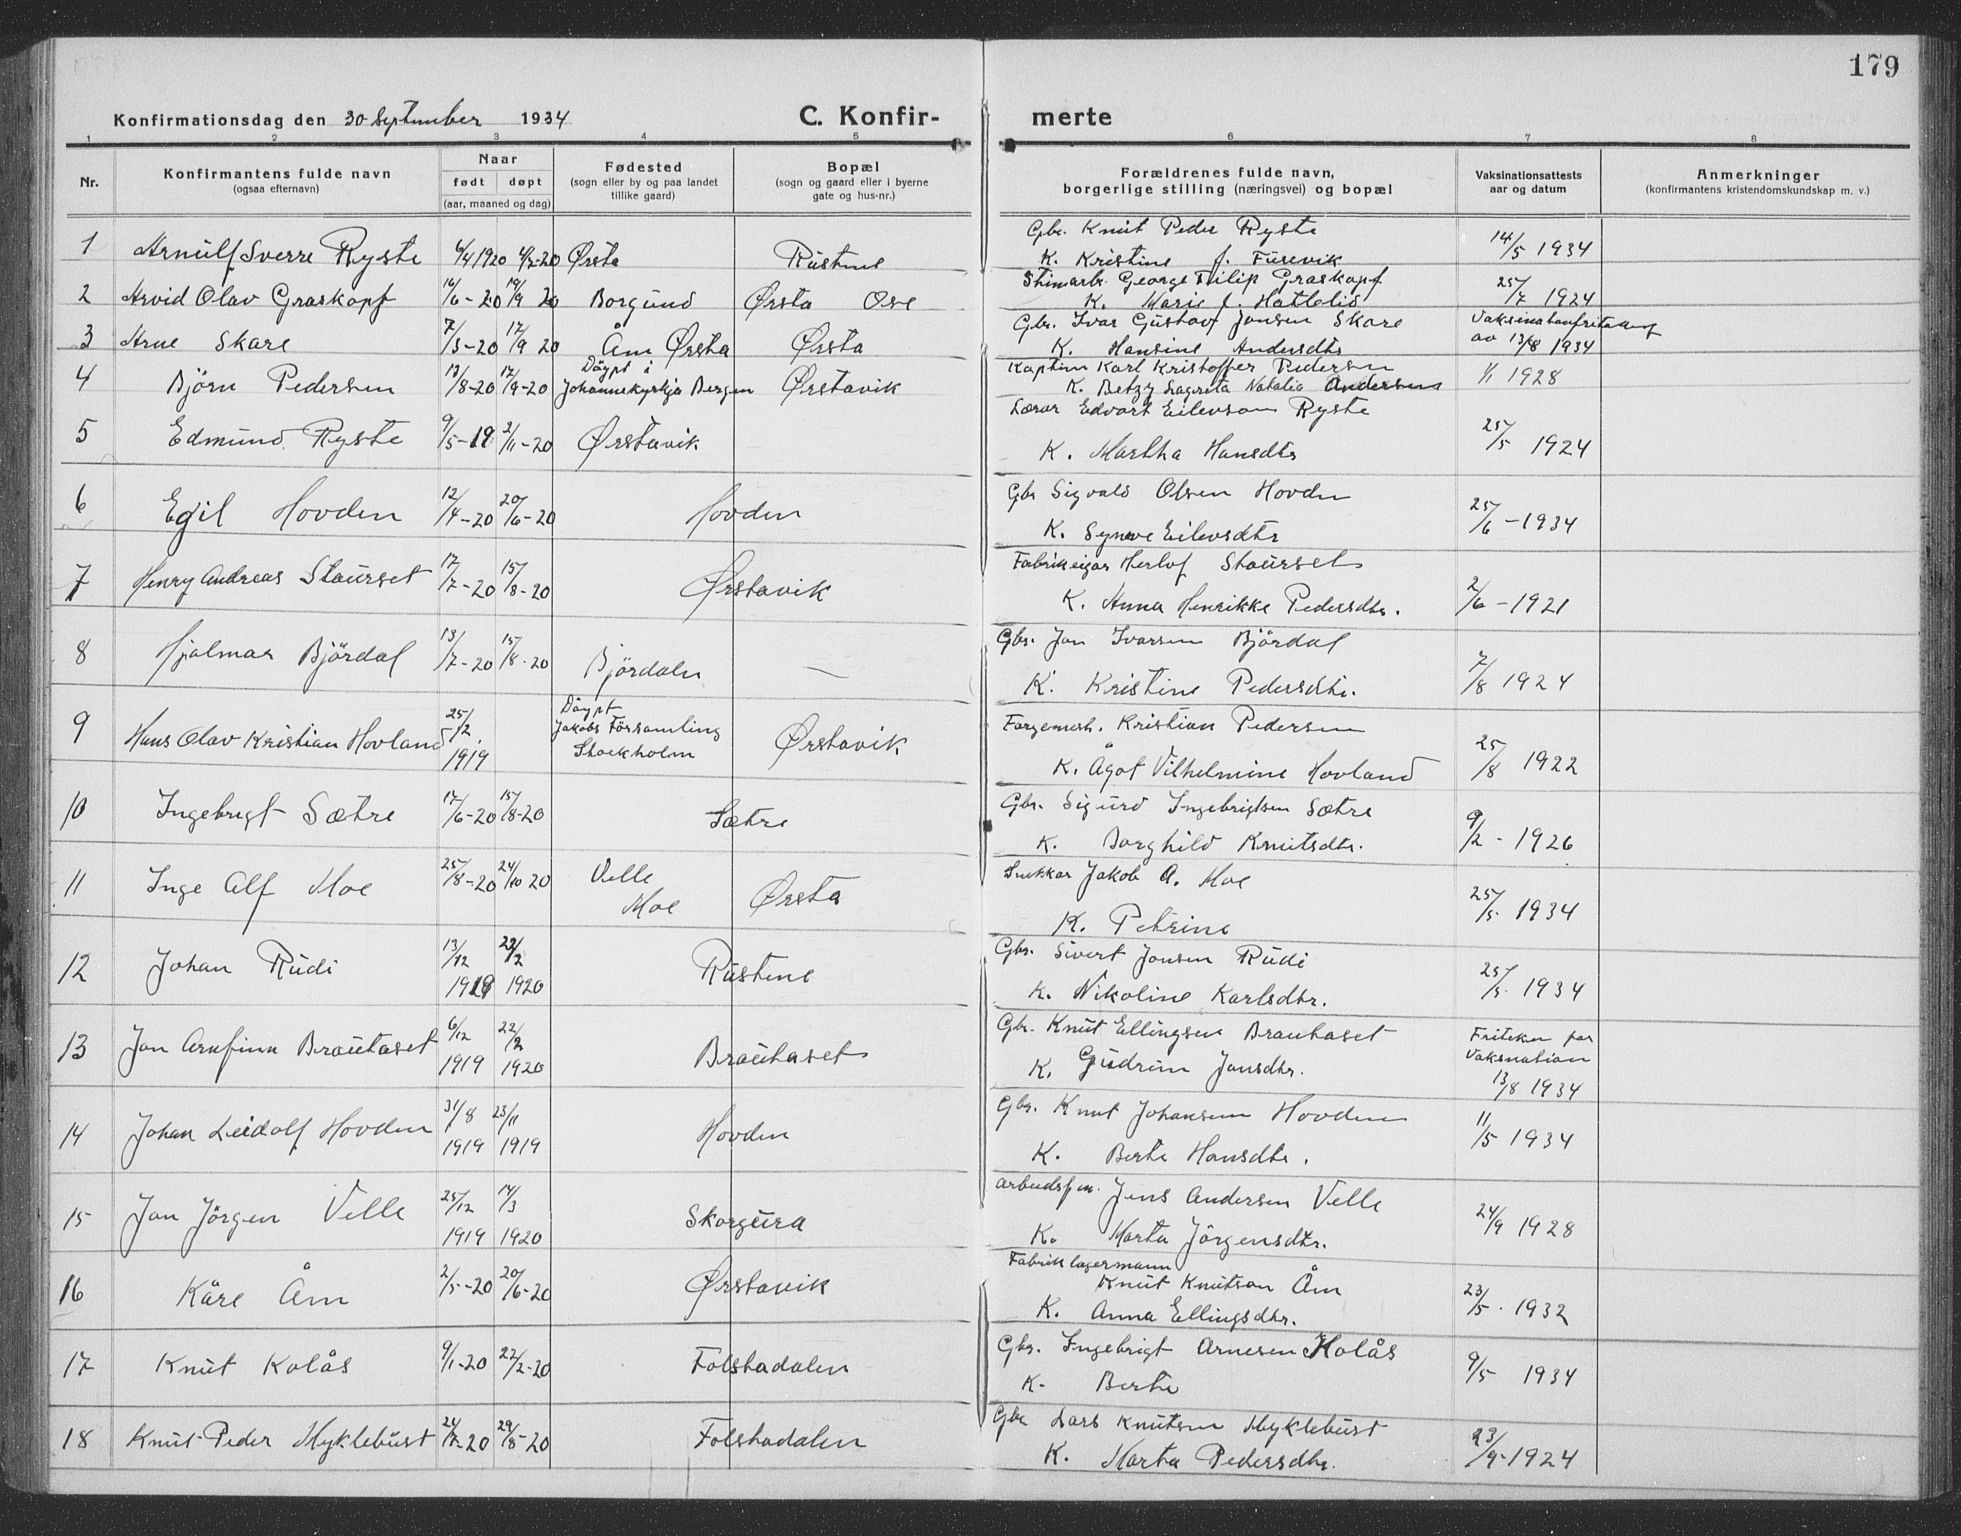 179
Konfirmationsdag den 30 September 1934
C. Konfir-
merte
1 2 3 4 5 6 7 8
Nr.
Konfirmantens fulde navn
(ogsaa efternavn)
Naar
født døpt
(aar, maaned og dag)
Fødested
(sogn eller by og paa landet
tillike gaard)
Bopæl
(sogn og gaard eller i byerne
gate og hus-nr.)
Forældrenes fulde navn,
borgerlige stilling (næringsvei) og bopæl
Vaksinationsattests
aar og datum
Anmerkninger
(konfirmantens kristendomskundskap m. v.)
1 Arnulf Sverre Ryste 6/4 1920 4/7-20 Ørsta Rustene
Gbr. Knut Peder Ryste
K. Kristine f. Furevik
14/5 1934
2 Arvid Olav Graskopf 16/6-20 19/9 20 Borgund Ørsta Ose
George Filip Graskopf
K. Marie f. Hatlelid
25/7 1924
3 Arne Skare 7/3-20 12/9 20 Åm Ørsta Ørsta
Gbr. Ivar Gustav Jonsen Skare
K. Hansine Andersdtr
av 13/8 1934
4 Bjørn Pedersen 13/8-20 12/9-20 Døypt i
Johannekyrkja Bergen Ørstavik
Kaptein Karl Kristoffer Pedersen
K. Betzy Sagreta Natalia Andersens
1/1 1928
5 Edmund Ryste 9/5-19 2/11-20 Ørstavik
Lærar Edvart Eilevson Ryste
K. Martha Hansdtr
25/5 1924
6 Egil Hovden 12/4-20 20/6-20 Hovden
Gbr Sigvald Olsen Hovden
K. Synøve Eilevsdtr
25/6-1934
7 Henry Andreas Staurset 17/7-20 15/8-20 Ørstavik
Fabrikeigar Herlof Staurset
K. Anna Henrikke Pedersdtr.
2/6-1921
8 Hjalmar Bjørdal 13/7-20 15/8-20 Bjørdalen —
Gbr. Jon Ivarsen Bjørdal
K. Kristine Pedersdtr.
7/8 1924
9 Hans Olav Kristian Hovland 25/2 1919 Døypt
Jakobs Församling
Stockholm Ørstavik
Fargemesh. Kristian Pedersen
K. Ågot Vilhelmine Hovland
25/8 1922
10 Ingebrigt Sætre 17/6-20 15/8-20 Sætre
Gbr. Sigurd Ingebrigtsen Sætre
K. Borghild Knutsdtr.
9/2-1926
11 Inge Alf Moe 25/8-20 24/10 20 Velle
Moe Ørsta
Snikkar Jakob A. Moe
K. Petrine
25/5 1934
12 Johan Rudi 13/12 1919 22/2 1920 Rustene
Gbr. Sivert Jonsen Rudi
K. Nikoline Karlsdtr.
25/5 1934
13 Jon Arnfinn Brautaset 6/12 1919 22/2 1920 Brautaset
Gbr. Knut Ellingsen Brautaset
K. Gudrun Jonsdtr.
Friteken for
Vaksnation
13/8 1934
14 Johan Leidolf Hovden 31/8 1919 23/11 1919 Hovden
Gbr. Knut Johansen Hovden
K. Berte Hansdtr.
11/5 1934
15 Jon Jørgen Velle 25/12 1919 14/3 1920 Skorgura
Arbeidsfm. Jens Andersen Velle
K. Marta Jørgensdtr.
24/9 1928
16 Kåre Åm 2/5-20 20/6-20 Ørstavik
Fabriklagermann
Knut Knutson Åm
K. Anna Ellingsdtr.
23/5. 1932
17 Knut Kolås 9/1-20 22/2-20 Follstadalen
Gbr. Ingebrigt Arnesen Kolås
K. Berte
9/5 1934
18 Knut Peder Myklebust 24/7-20 29/8-20 Follstadalen
Gbr Lars Knutsen Myklebust
K. Marta Pedersdtr.
23/9-1924